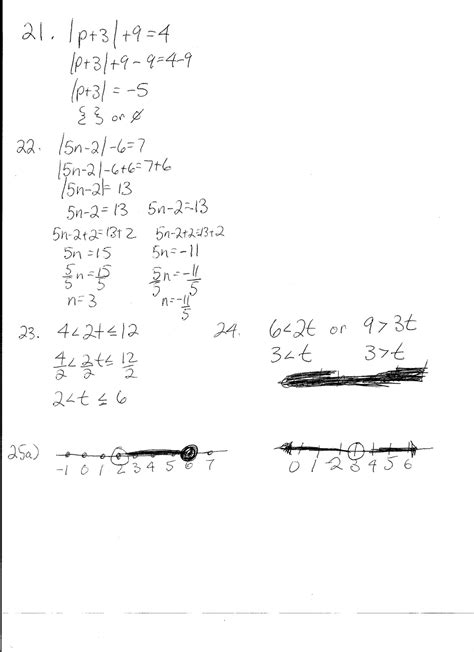 21. |p+3|+9=4
|p+3|+9-9=4-9
|p+3| = -5
{ } or ∅
22. |5n-2|-6=7
|5n-2|-6+6=7+6
|5n-2|= 13
5n-2=13 5n-2=-13
5n-2+2=13+2 5n-2+2=-13+2
5n=15 5n=-11
5/5 n=15/5 5/5 n=-11/5
n=3 n=-11/5
23. 4<2t≤12 24. 6<2t or 9>3t
4/2<2/2t≤12/2 3<t 3>t
2<t≤6
25a) -1 0 1 2 3 4 5 6 7 0 1 2 3 4 5 6